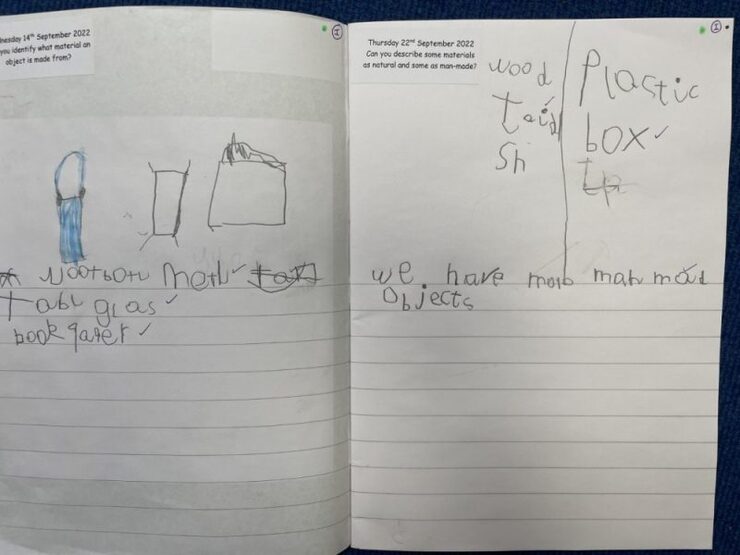 nesday 14th September 2022
you identify what material an
object is made from?
metl
Tabl glas
book paper
Thursday 22nd September 2022
Can you describe some materials
as natural and some as man-made?
wood
Sh
Plastic
box
we have man mad
Objects